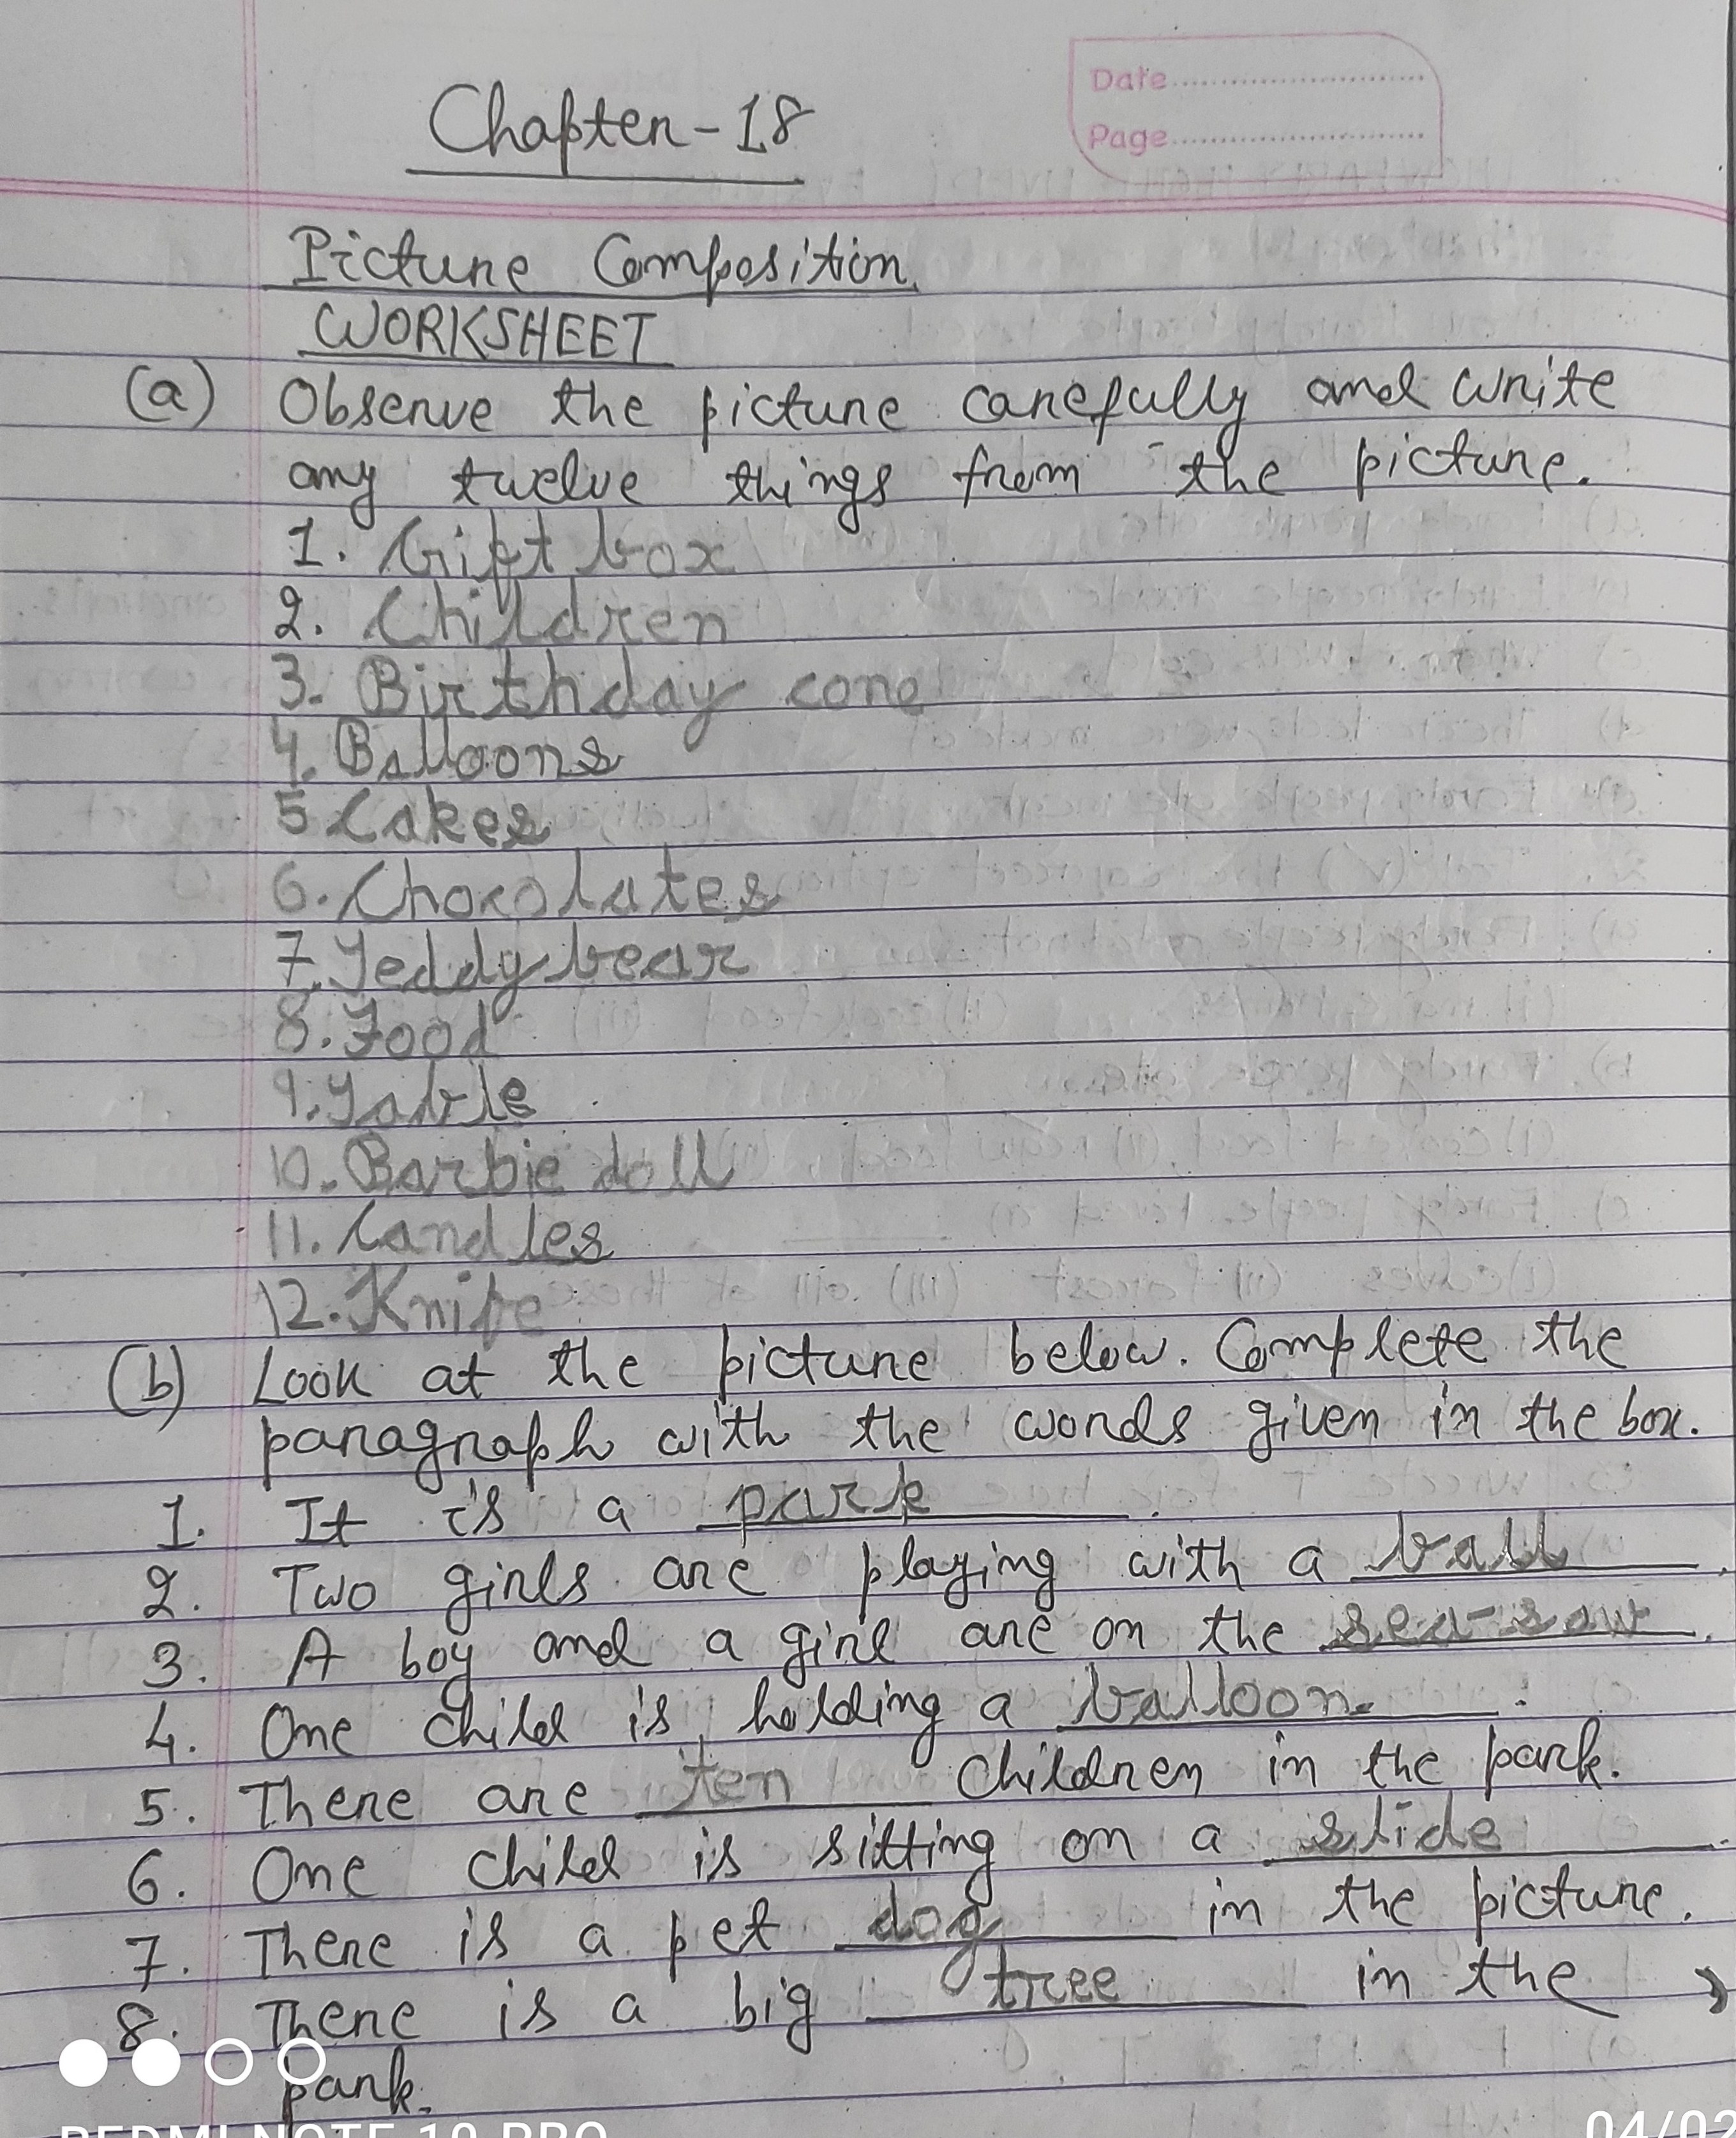 Date
Page
Chapter-18
Picture Composition.
WORKSHEET
(a) Observe the picture carefully and write
any twelve things from the picture.
1. Gift box
2. Children
3. Birthday cone
4. Balloons
5 Cakes
6. Chocolates
7. Teddy bear
8. Food
9. Table
10. Barbie doll
11. Candles
12. Knife
(b) Look at the picture below. Complete the
paragraph with the words given in the box.
1. It is a park.
2. Two girls are playing with a ball.
3. A boy and a girl are on the sea-saw.
4. One child is holding a balloon.
5. There are ten children in the park.
6. One child is sitting on a slide.
7. There is a pet dog in the picture.
8. There is a big tree in the
park.